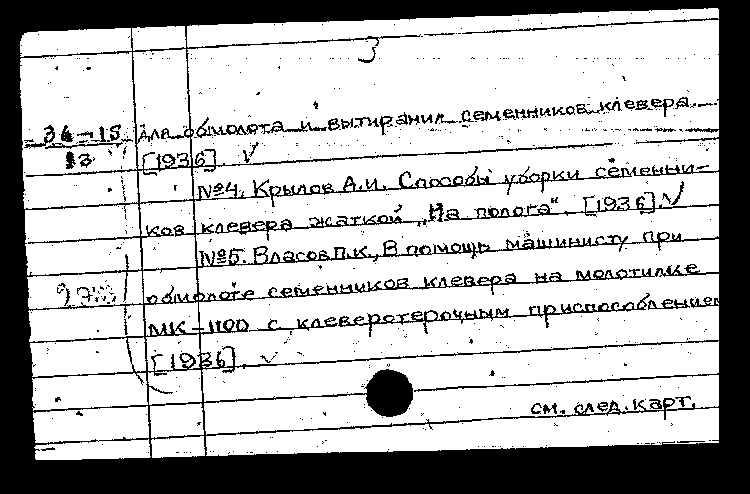 3
36-15 для обмолота и вытирания семенников клевера
13 [1936]. √
№4. Крылов А.И. Способы уборки семенни-
ков клевера жаткой „На полога“. [1936].√
№5. Власов П.К., В помощь машинисту при
обмолоте семенников клевера на молотилке
МК-1100 с клеверотерочным приспособлением
[1936]. √
см. след. карт.